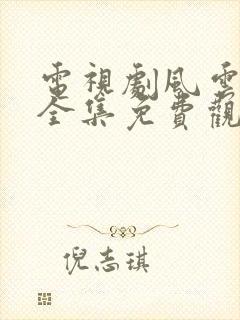 電視劇風雲
全集免費觀
倪志琪